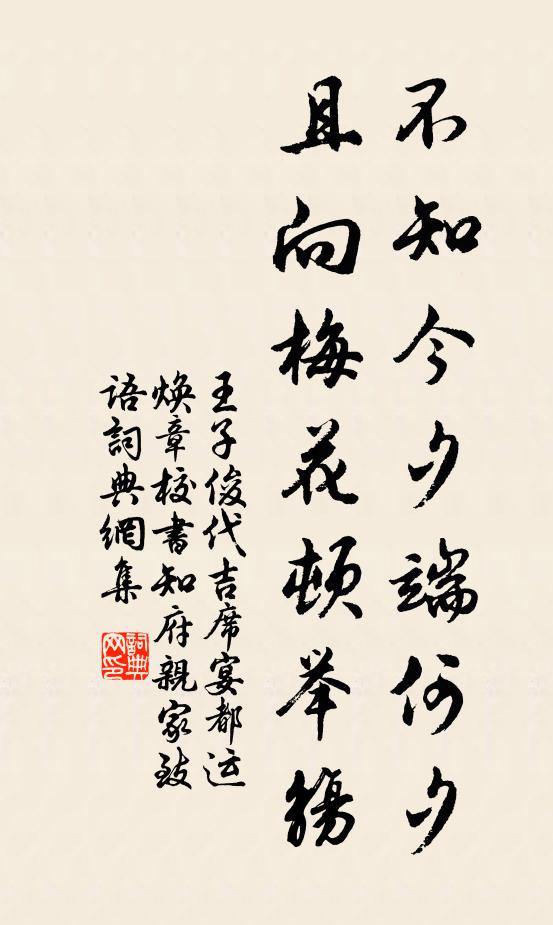 不知今夕端何夕
且向梅花頓举觴
王子俊代吉席宴都运
焕章校書知府親家致
语詞典網集
詞典
网印